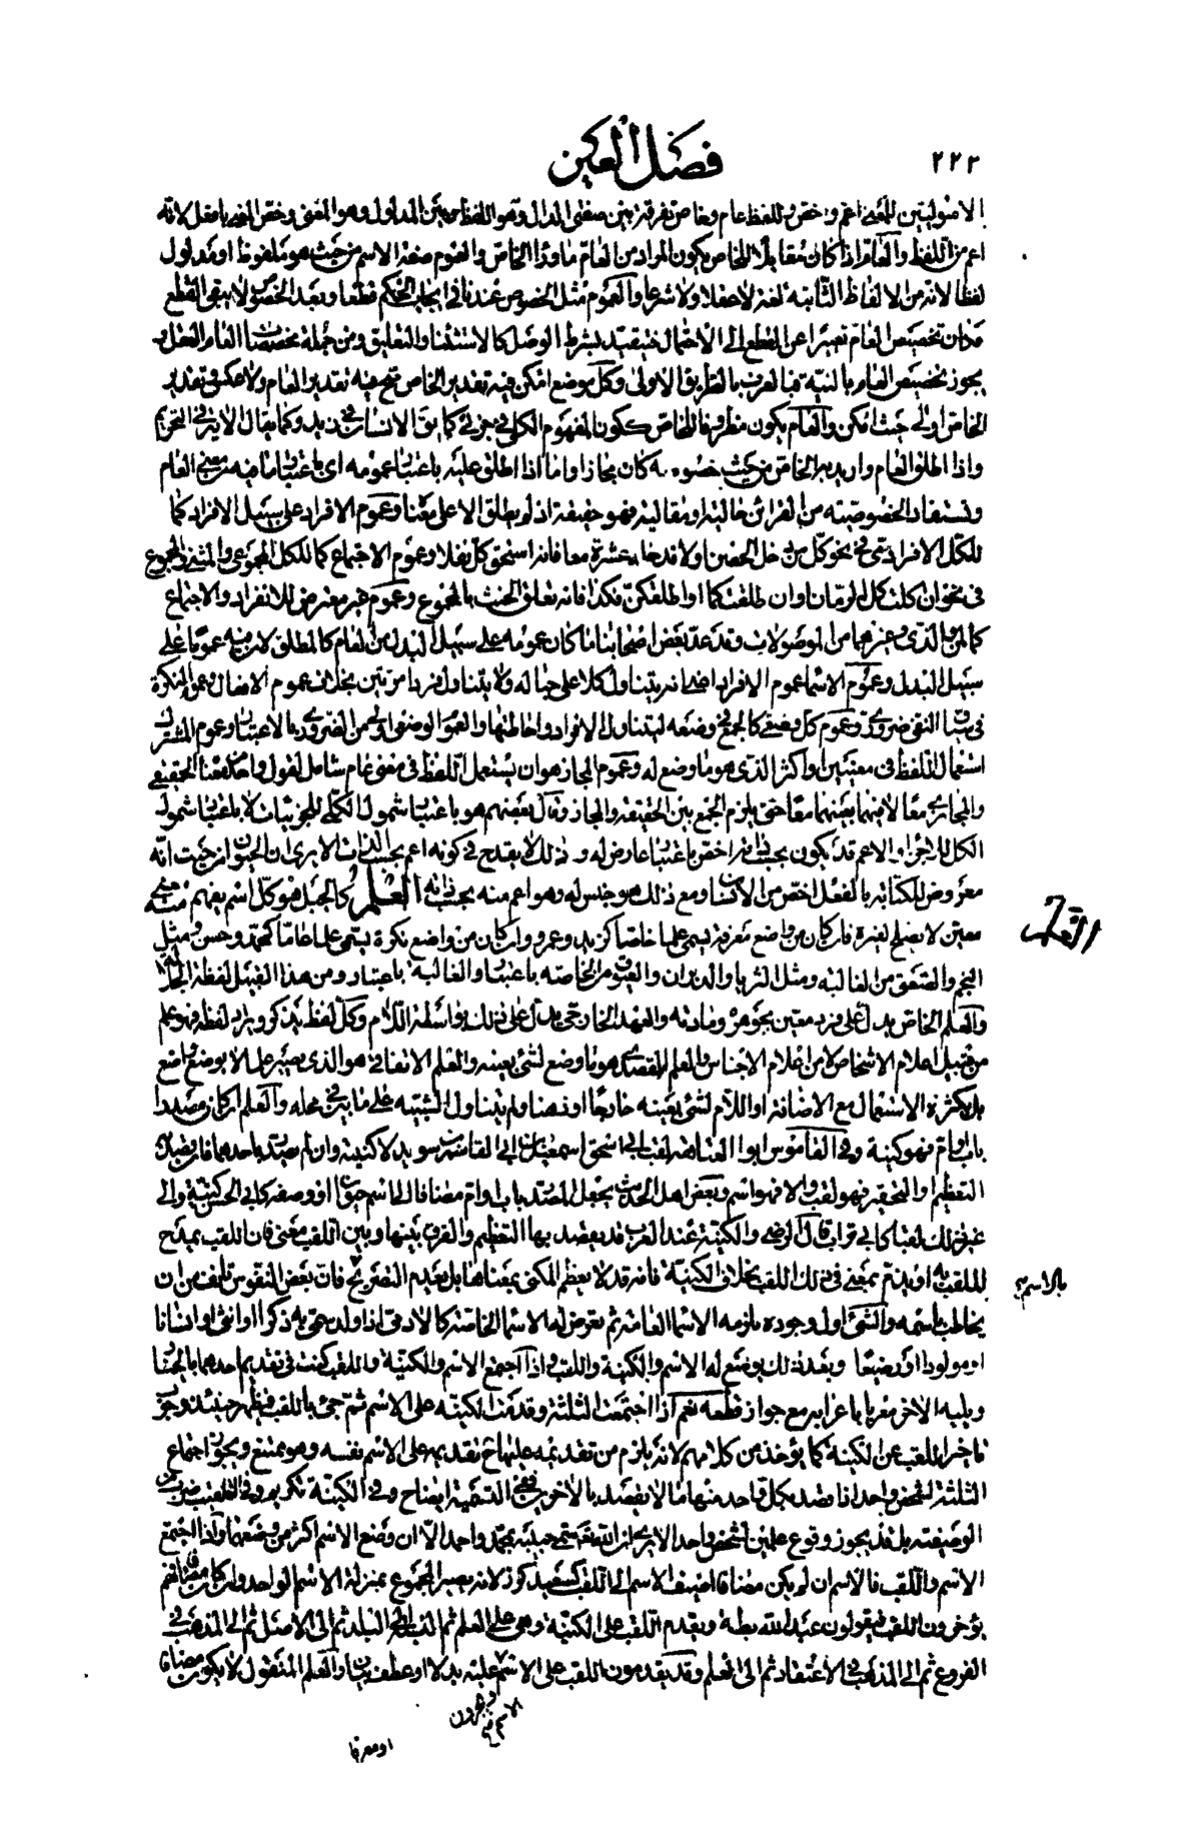 ٢٢٢
فصل العين
الاصوليين للمعنى اعم واخص وللفظ عام وخاص تفرقة بين صفتى الدال وهو اللفظ وبين المدلول وهو المعنى وخص المعنى بافعل لانه
اعم من اللفظ والعام اذا كان مقابلا للخاص يكون المراد من العام ما وراء الخاص والعموم صفة الاسم من حيث هو ملفوظ او مدلول
لفظا لانه من الالفاظ الثابتة لغة لا عقلا ولا شرعا والعموم مثل الخصوص عندنا فى ايجاب الحكم قطعا وبعد الخصوص لا يبقى القطع
فكان تخصيص العام تغييرا عن القطع الى الاحتمال فيتقيد بشرط الوصل كالاستثناء والتعليق ومن جملة مخصصات العام العقل و
يجوز تخصيص العام بالنية فبالعرف بالطريق الاولى وكل موضع امكن فيه تقدير الخاص صح فيه تقدير العام ولا عكس وتقدير
الخاص اولى حيث امكن والعام يكون مظروفا للخاص ككون المفهوم الكلى فى جزئى كما يق الانسان فى زيد وكما يقال الامر فى التحريم
واذا اطلق العام واريد به الخاص من حيث خصوصه كان مجازا واما اذا اطلق عليه باعتبار عمومه اى باعتبار ما فيه من معنى العام
وتستفاد الخصوصية من القرائن حالية او مقالية فهو حقيقة اذ لم يطلق الا على معناه وعموم الافراد على سبيل الافراد كما
للكل الافرادى فى نحو كل من دخل الحصن اولا فدخله عشرة معا فانه استحق كل نفلا وعموم الاجتماع كما للكل المجموعى والمثنى والمجموع
فى نحو ان اكلت كل الرمان او ان طلقتكما او اطلقكن فكذا فانه تعلق الحنث بالمجموع وعموم غير معترض للانفراد والاجتماع
كما لمن والذى وغيرهما من الموصولات وقد عد بعض اصحابنا ما كان عمومه على سبيل البدل من العام كالمطلق لان فيه عموما على
سبيل البدل وعموم الاسماء عموم الافراد اعنى انه يتناول كلا على حياله ولا يتناول فردا مرتين بخلاف عموم الافعال وعموم النكرة
فى سياق النفى ضرورى وعموم كل وضعى كالجمع فى وضعه لتناول الافراد واحاطتها والعموم الوضعى اولى من الضرورى بالاعتبار وعموم المشترك
استعمال اللفظ فى معنيين او اكثر الذى هو ما وضع له وعموم المجاز هو ان يستعمل اللفظ فى معنى عام شامل لغول واحد معناه الحقيقى
والمجازى معا لا فيهما بعينهما معا حتى يلزم الجمع بين الحقيقة والمجاز وقال بعضهم هو باعتبار شمول الكلى للجزئيات لا باعتبار شمول
الكل للاجزاء والاعم قد يكون بحسب ذاته اخص باعتبار عارض له و ذلك لا يقدح فى كونه اعم بحسب الذات الا يرى ان الحيوان من حيث انه
معروض للكتابة بالفعل اخص من الانسان ومع ذلك هو جنس له وهو اعم منه بحسب ذاته العلم كالجبل هو كل اسم يفهم منه معنى
معين لا يصلح لغيره فان كان من واضع معرفة يسمى علما خاصا كزيد وعمرو وان كان من واضع نكرة يسمى علما عاما كمحمد وحسن ومثل
النجم والصعق من الغالبة ومثل الثريا والدبران والعيوق من الخاصة باعتبار والغالبة باعتبار ومن هذا القبيل لفظة الجلالة
والعلم الخاص يدل على فرد معين بجوهره ومادته والعهد الخارجى يدل على ذلك بواسطة اللام وكل لفظ يذكر ويراد لفظه فهو علم
من قبيل اعلام الاشخاص لا من اعلام الاجناس والعلم القصدى هو ما وضع لشئ بعينه والعلم الاتفاقى هو الذى يصير علما لا بوضع واضع
بل بكثرة الاستعمال مع الاضافة او اللام لشئ بعينه خارجا او ذهنا ولم يتناول الشبيه على ما بين فى محله والعلم ان كان مصدرا
باب او ام فهو كنية وفى القاموس ابو العتاهية لقب ابى اسحق اسمعيل بن ابى القاسم بن سويد لا كنيته وان لم يصدر باحدهما فان قصد به
التعظيم او التحقير فهو لقب والا فهو اسم وبعض اهل الحديث يجعل المصدر باب او ام مضافا الى اسم حيوان او وصفه كابى الحسن كنية والى
غير ذلك لقبا كابى تراب قال الرضى والكنية عند العرب قد يقصد بها التعظيم والفرق بينها وبين اللقب معنى فان اللقب يمدح
الملقب به او يذم بمعنى فى ذلك اللقب بخلاف الكنية فانه قد لا يعظم المكنى بمعناها بل بعدم التصريح فان بعض النفوس تأنف من ان
يخاطب باسمه والشئ اول وجوده يلزمه الاسماء العامة ثم تعرض له الاسماء الخاصة كالآدمى اذا ولد سمى به ذكرا او انثى او انسانا
او مولودا او رضيعا وبعد ذلك يوضع له الاسم والكنية واللقب واذا اجتمع الاسم والكنية واللقب كنت فى تقديم احدهما بالخيار
ويليه الآخر معربا باعرابه مع جواز قطعه نعم اذا اجتمعت الثلثة وقدمت الكنية على الاسم ثم جئ باللقب فيظهر حينئذ وجوب
تأخر اللقب عن الكنية كما يؤخذ من كلامهم لانه يلزم من تقديمه عليها ح تقديمه على الاسم نفسه وهو ممتنع ويجوز اجتماع
الثلثة لشخص واحد اذا قصد بكل واحد منها ما لا يقصد بالآخر ففى التسمية ايضاح وفى الكنية تكريم وفى التلقيب ضرب من
الوصفية بل قد يجوز وقوع علمين لشخص واحد الا يرى ان الله تعالى سمى حبيبه بمحمد واحمد الا ان وضع الاسم اكثر من وضعهما واذا اجتمع
الاسم واللقب فالاسم ان لم يكن مضافا اضيف الاسم الى اللقب كسعيد كرز لانه يصير المجموع بمنزلة الاسم الواحد وان كان مضافا فهم
يؤخرون اللقب فيقولون عبد الله بطة ويقدم اللقب على الكنية وهى على العلم ثم النسبة الى البلد ثم الى الاصل ثم الى المذهب فى
الفروع ثم الى المذهب فى الاعتقاد ثم الى العلم وقد يقدمون اللقب على الاسم عليه بدلا او عطف بيان والعلم المنقول لا يكون مضافا
العلم
بالاسم
ويجرون الاسم
او معرفا